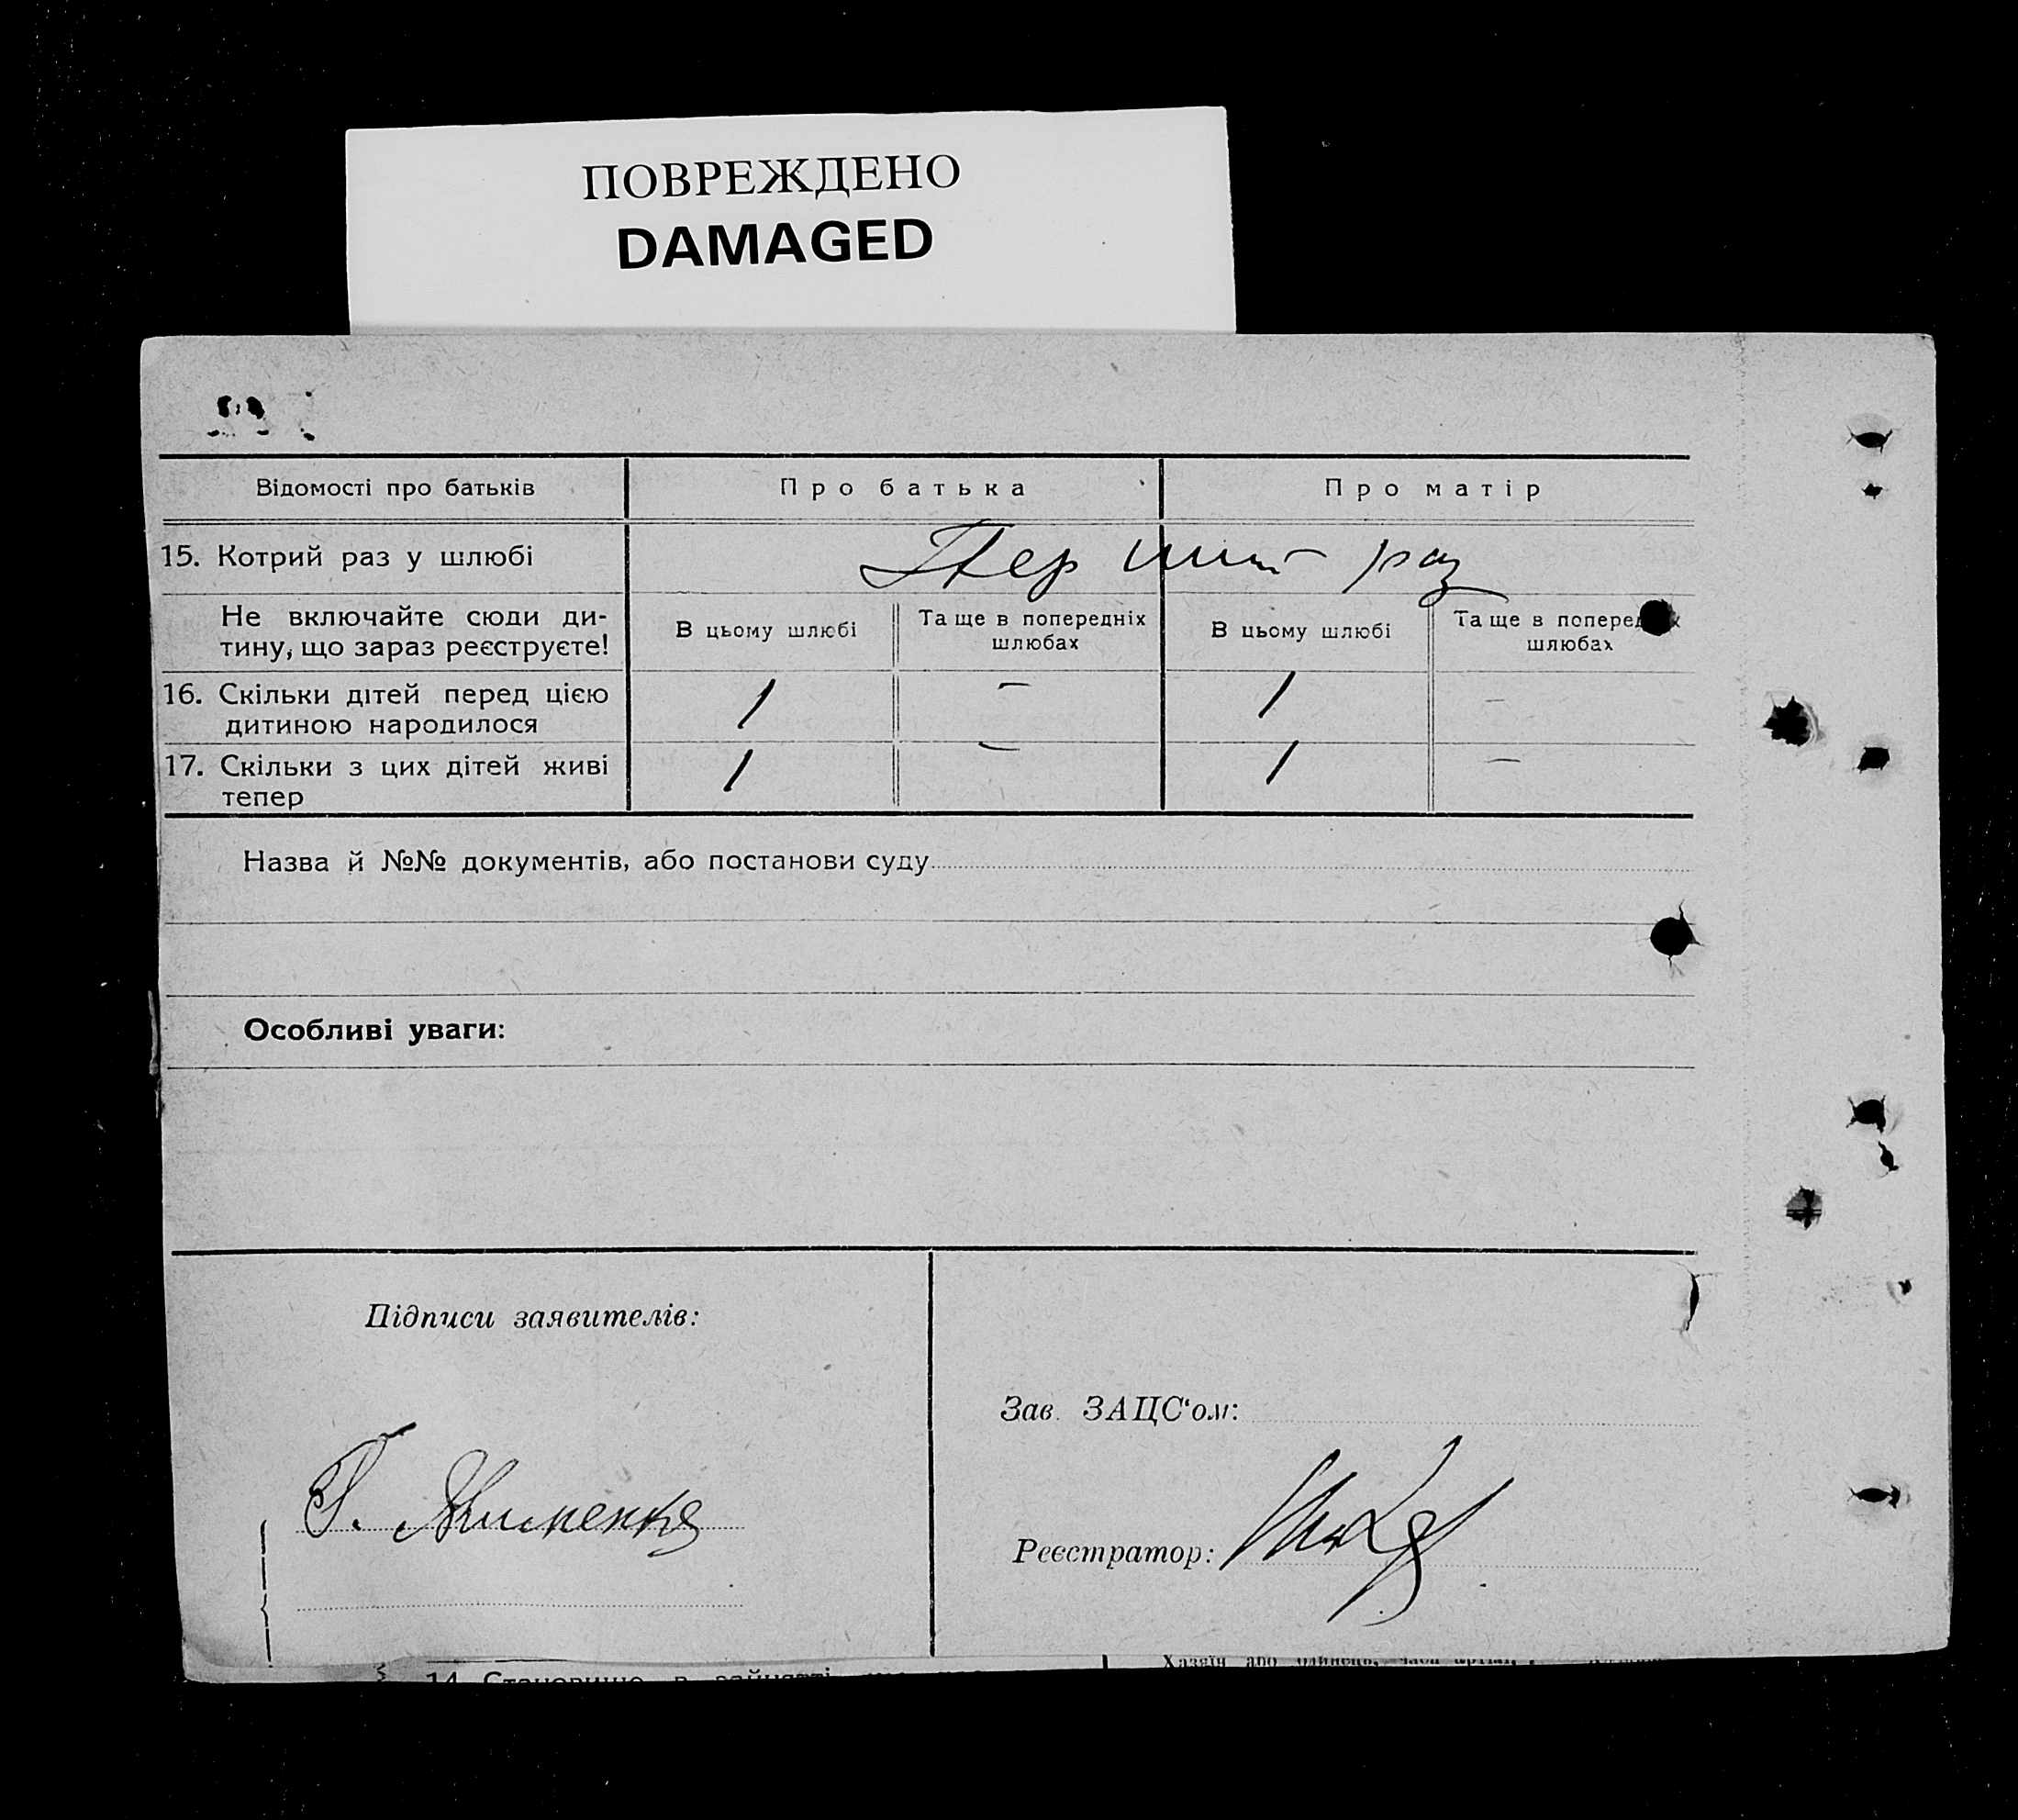 ПОВРЕЖДЕНО
DAMAGED
Відомості про батьків
Про батька
Про матір
15. Котрий раз у шлюбі
Перший раз
Не включайте сюди ди-
тину, що зараз реєструєте!
В цьому шлюбі
Та ще в попередніх
шлюбах
В цьому шлюбі
Та ще в
шлюбах
16. Скільки дітей перед цією
дитиною народилося
1
—
1
—
17. Скільки з цих дітей живі
тепер
1
—
1
—
Назва й №№ документів, або постанови суду
Особливі уваги:
Підписи заявителів:
Зав. ЗАЦС‘ом:
Реєстратор:
14 Становище в зайнятті